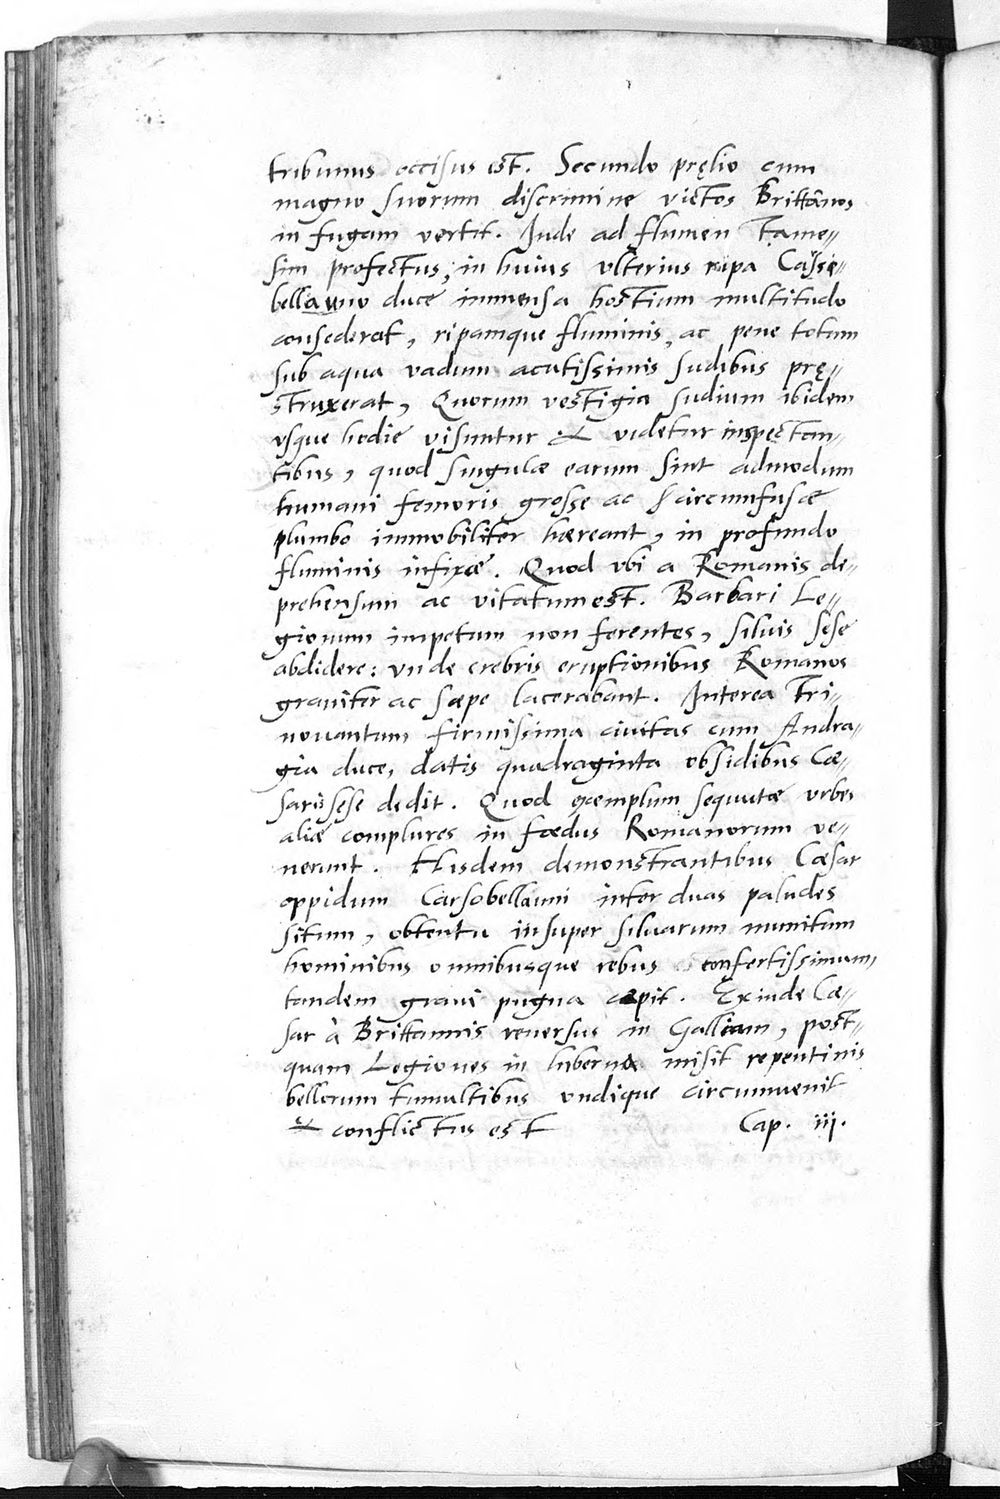 tribunus occisus est. Secundo pręlio cum
magno suorum discrimine victos Brittanos
in fugam vertit. Inde ad flumen Tame„
sim profectus, in huius vlterius ripa Casse„
bellauno duce immensa hostium multitudo
consederat, ripamque fluminis, ac pene totum
sub aqua vadum acutissimis sudibus prę„
struxerat, Quorum vestigia sudium ibidem
vsque hodie visuntur & videtur inspectan„
tibus, quod singulæ earum sint admodum
humani femoris grosse ac circumfusæ
plumbo immobiliter hæreant, in profundo
fluminis infixæ. Quod vbi a Romanis de„
prehensum ac vitatum est. Barbari Le„
gionum impetum non ferentes, siluis sese
abdidere: vnde crebris eruptionibus Romanos
grauiter ac sæpe lacerabant. Interea Tri„
nouantum firmissima ciuitas cum Andra„
gia duce, datis quadraginta obsidibus Cæ„
sari sese dedit. Quod exemplum sequutæ vrbes
aliæ complures in fædus Romanorum ve„
nerunt. Hisdem demonstrantibus Cæsar
oppidum Carsobellauni inter duas paludes
situm, obtentu insuper siluarum munitum
hominibus omnibusque rebus confertissimum,
tandem graui pugna cæpit. Exinde Cæ„
sar à Brittannis reuersus in Galliam, post„
quam Legiones in hiberna misit repentinis
bellorum tumultibus vndique circumuenit
& conflictus est Cap. iij.